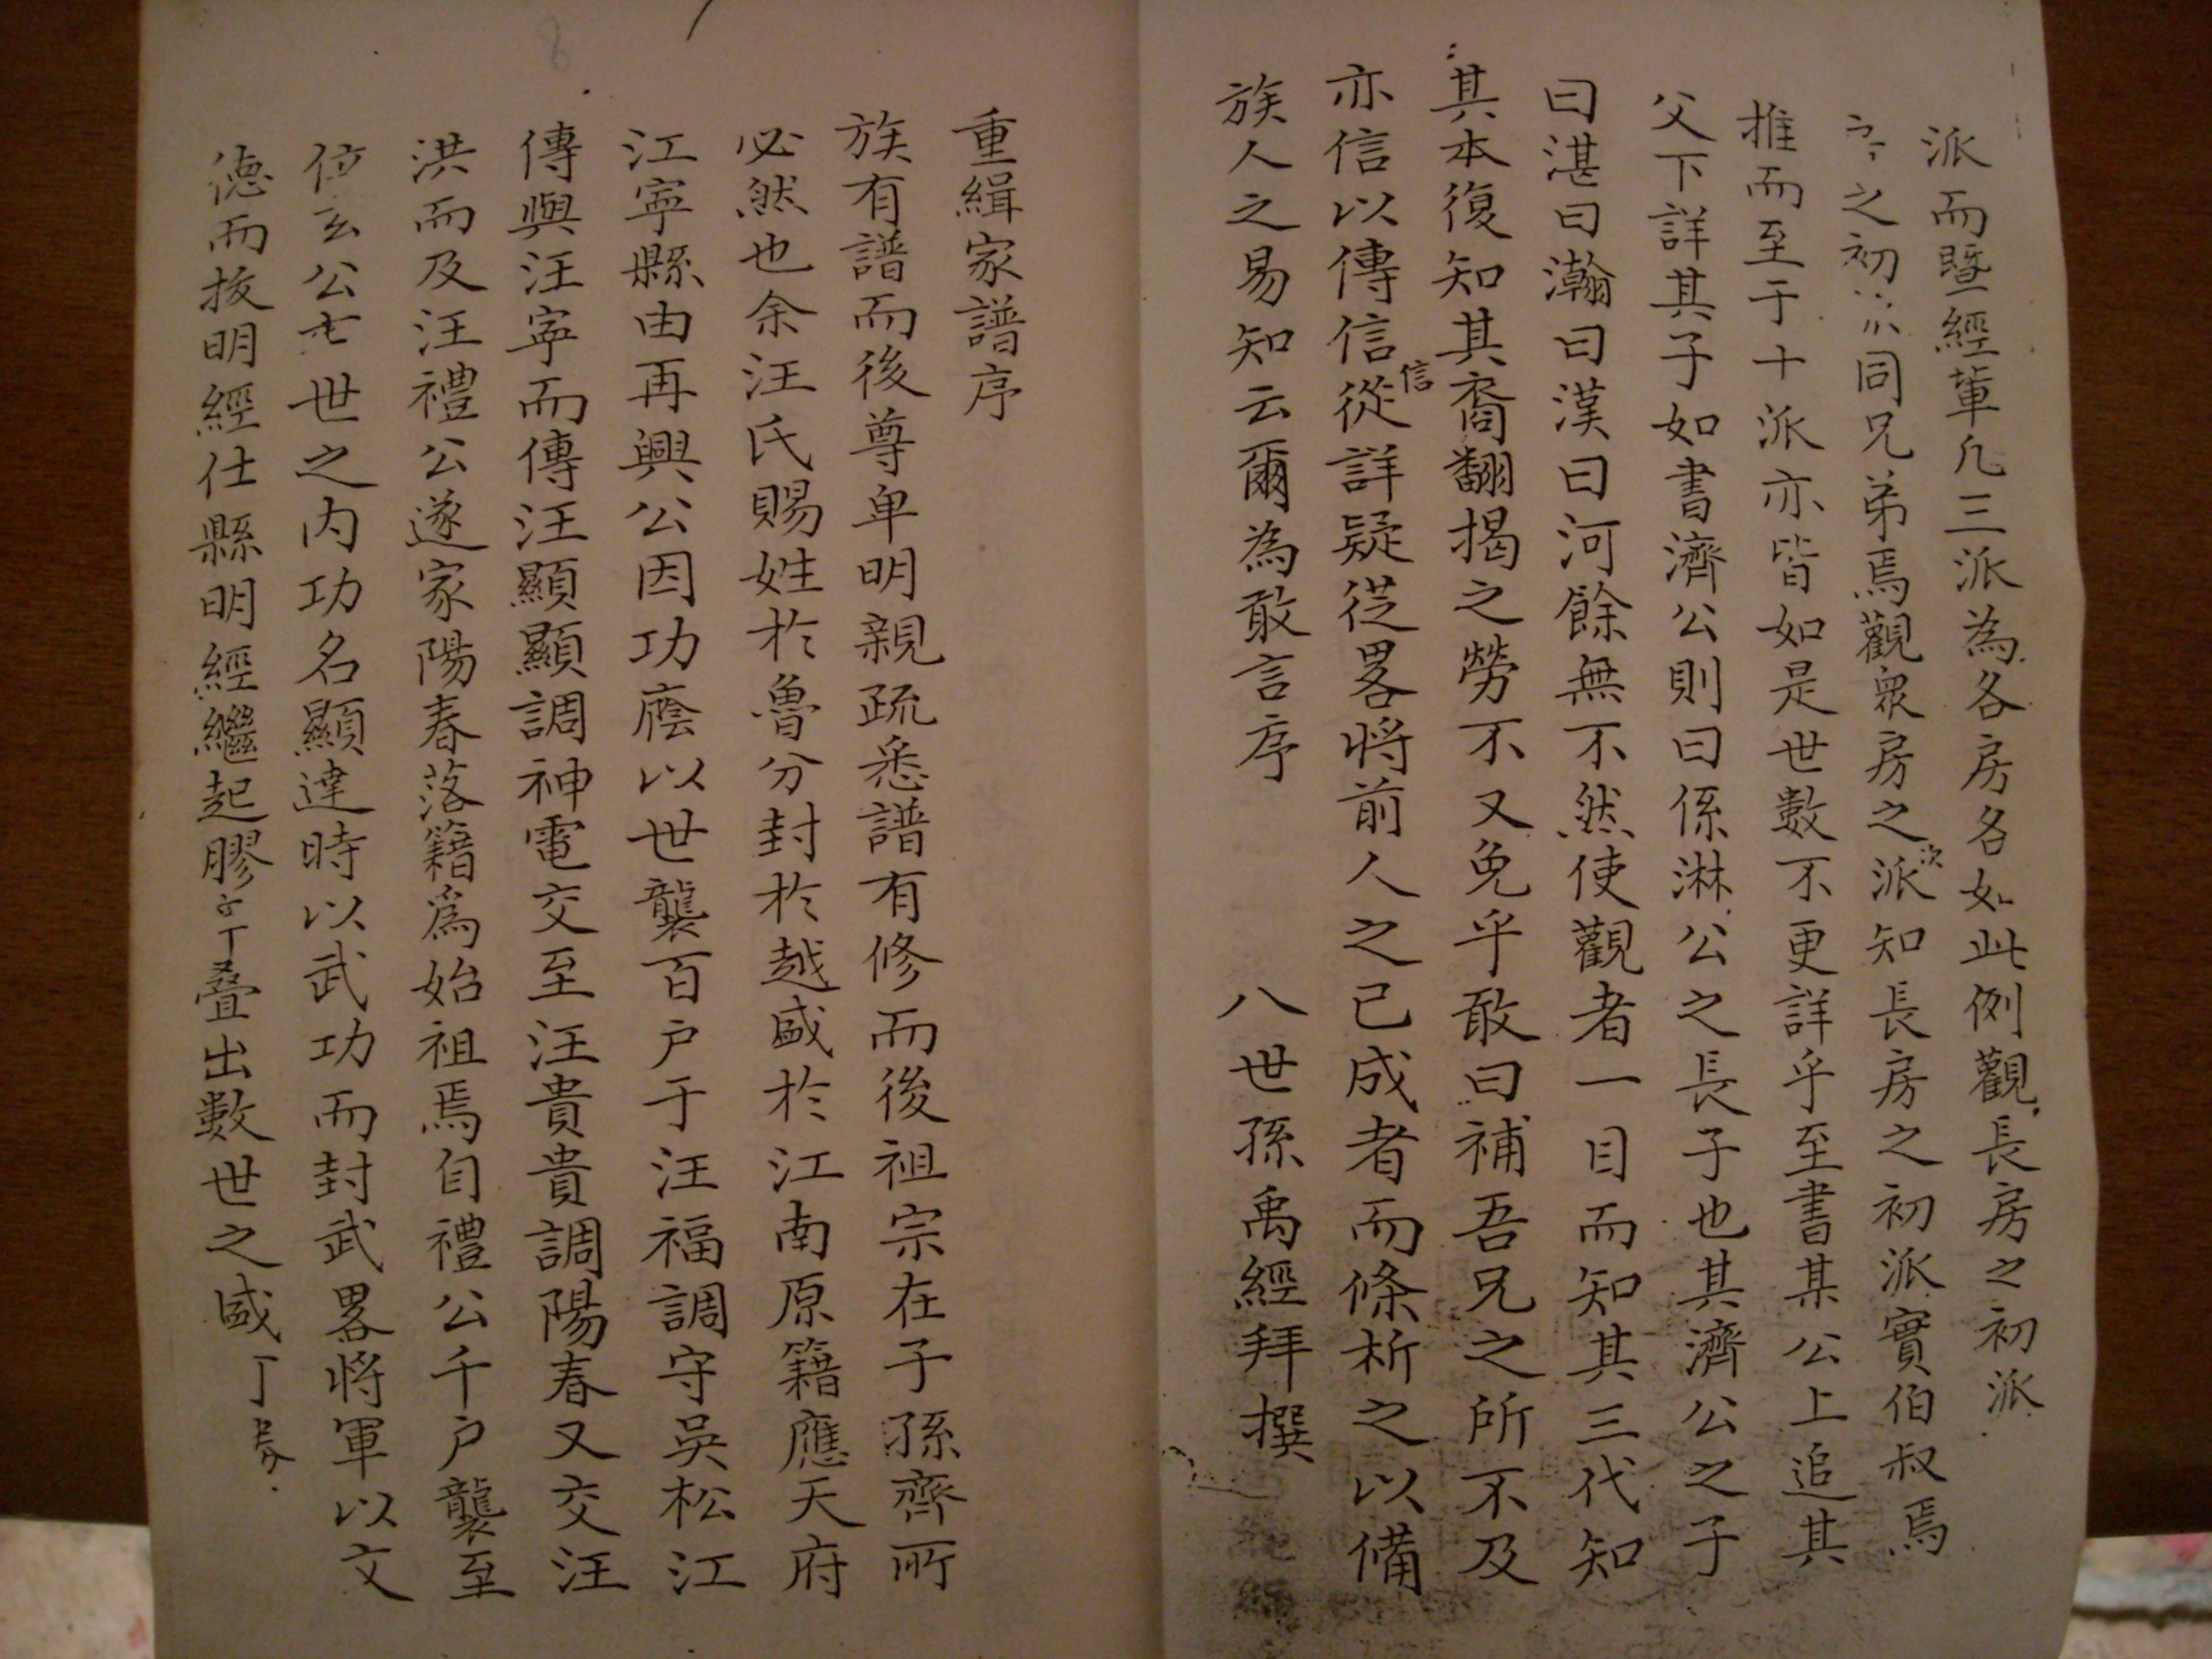 派而暨經輩凡三派為各房各如此例觀長房之初派
之初 同兄弟焉觀衆房之次派知長房之初派實伯叔焉
推而至于十派亦皆如是世數不更詳乎至書某公上追其
父下詳其子如書濟公則曰係淋公之長子也其濟公之子
曰湛曰瀚曰漢曰河餘無不然使觀者一目而知其三代知
其本復知其裔翻揭之勞不又免乎敢曰補吾兄之所不及
亦信以傳信信從詳疑從畧將前人之已成者而條析之以備
族人之易知云爾為敢言序 八世孫禹經拜撰
8
重緝家譜序
族有譜而後尊卑明親疏悉譜有修而後祖宗在子孫齊所
必然也余汪氏賜姓於魯分封於越盛於江南原籍應天府
江寧縣由再興公因功廕以世襲百户于汪福調守吳松江
傳與汪寧而傳汪顯顯調神電交至汪貴貴調陽春又交汪
洪而及汪禮公遂家陽春落籍爲始祖焉自禮公千户襲至
位玄公七世之内功名顯達時以武功而封武畧將軍以文
德而拔明經仕縣明經繼起膠 叠出數世之盛丁